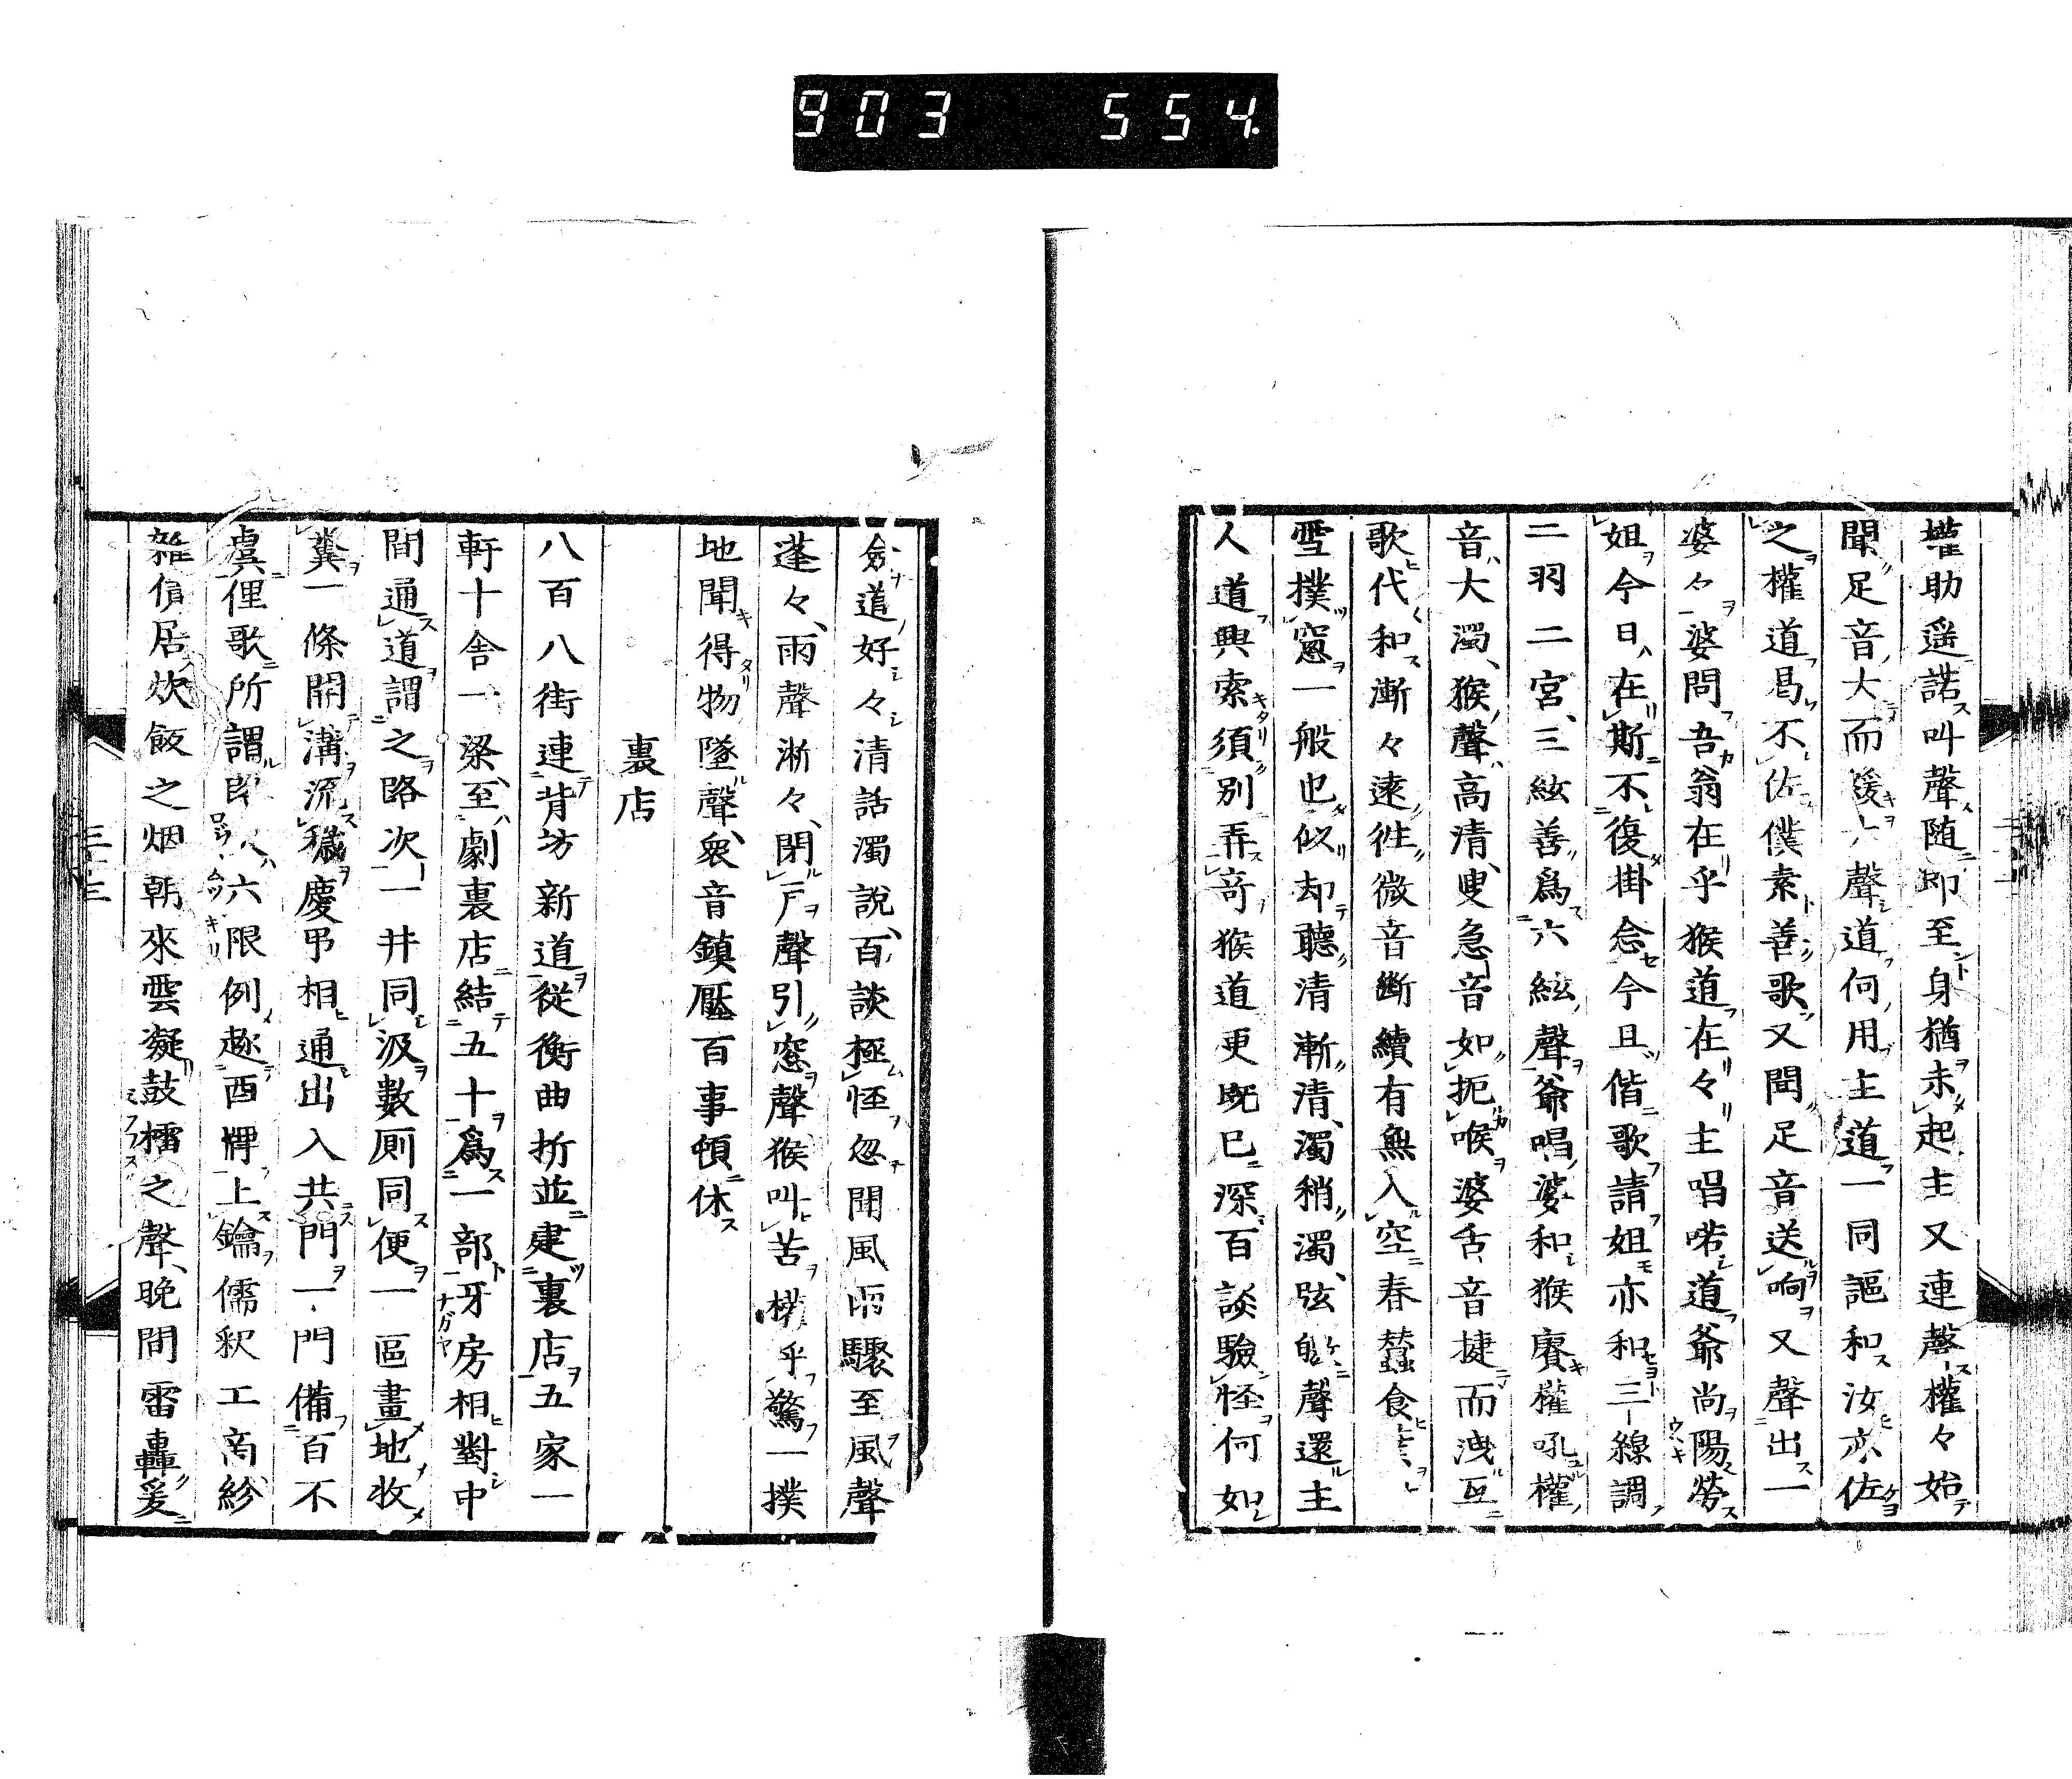 903 554.
權助遥諾叫聲随即至身猶未起主又連聲權々始
聞足音大而緩大聲道何用主道一同謳和汝亦佐
之權道曷不佐僕素善歌又聞足音送响又聲出一
婆々婆問吾翁在乎猴道在々主唱喏道爺尚陽勞
姐今日在斯不復掛念今且偕歌請姐亦和三線調
二羽二宮三絃善爲六絃聲爺唱婆和猴賡權吼權
音大濁猴聲高清叟急音如扼喉婆舌音捷而洩互
歌代和漸々遠徃微音斷續有無入空春蠶食
雪撲窻一般也似却聽清漸清濁稍濁弦聲還主
人道興索須別弄竒猴道更既已深百談驗怪何如
僉道好々清話濁說百談極怪忽聞風雨驟至風聲
蓬々雨聲淅々閉戸聲引窓聲猴叫苦權乎驚一撲
地聞得物墜聲衆音鎮壓百事頓休
裏店
八百八街連背坊新道從衡曲折並建裏店五家一
軒十舎一梁至劇裏店結五十爲一部牙房相對中
間通道謂之路次一井同汲數厠同便一區畫地收
糞一條開溝流穢慶弔相通出入共門一門備百不
虞俚歌所謂六限例趂酉牌上鑰儒釈工商紗
雜僦居炊飯之烟朝來雲凝鼓櫺之聲晚間雷轟爰
三十三